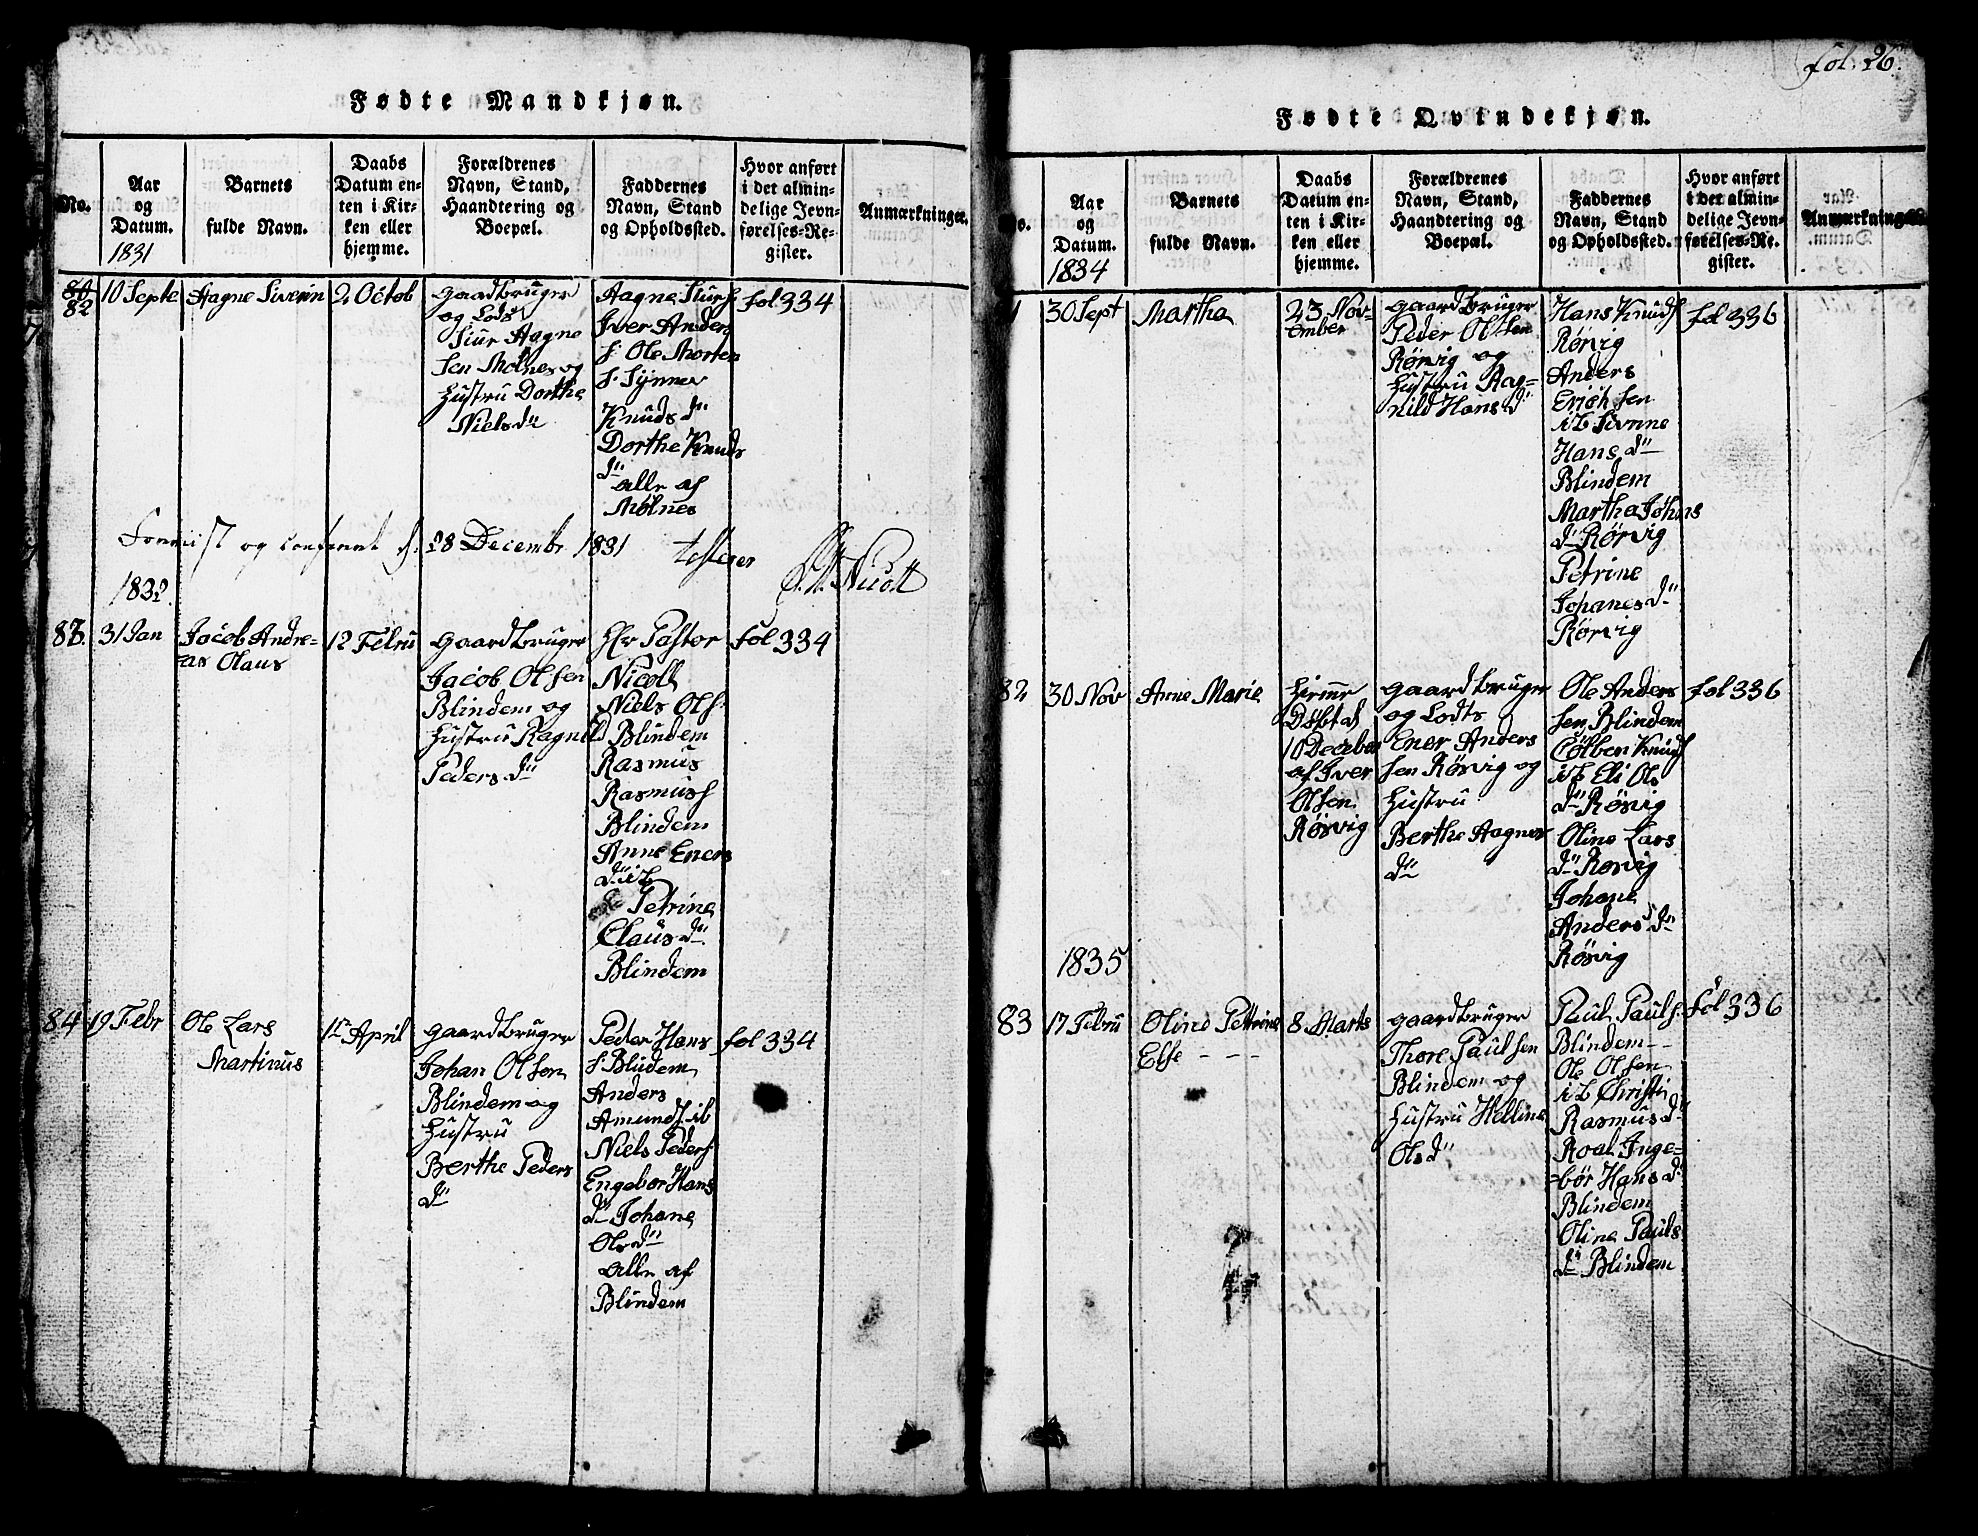 fol. 26.
Fødte Mandkjøn.
No.
Aar
og
Datum.
1831
Barnets
fulde Navn.
Daabs
Datum en-
ten i Kir-
ken eller
hjemme.
Forældrenes
Navn, Stand,
Haandtering og
Boepæl.
Faddernes
Navn, Stand
og Opholdssted.
Hvor anført
i det almin-
delige Jevn-
førelses-Re-
gister.
Anmærkninger.
82
10 Septe
Aagne Siverin
2 Octob
gaardbruger
og Lods
Siur Aagne
sen Molnes og
Hustru Dorthe
Niels dr
Aagne Siurs
Iver Anders
s. Ole Morten
s. Synnev
Knuds dr
Dorthe Knuds
dr
alle af
Mølnes
fol 334
og conferert d. 28 Decembr 1831
Nicoll
1832.
83.
31 Jan
Jacob Andre-
as Olaus
12 Febru
gaardbruger
Jacob Olsen
Blindem og
Hustru Ragnild
Peders dr
Hr Pastor
Nicoll
Niels Ols.
Blindem
Rasmus
Rasmuss
Blindem
Anne Eners
dr ib
Petrine
Claus dr
Blindem
fol 334
84
19 Febr
Ole Lars
Martinus
1te April
gaardbruger
Johan Olsen
Blindem og
Hustru
Berthe Peders
dr
Peder Hans
s Blindem
Anders
Amunds ib
Niels Peders
Engebor Hans
dr Johane
Ols dr
alle af
Blindem
fol 334
Fødte Qvindekjøn.
No.
Aar
og
Datum.
1834
Barnets
fulde Navn.
Daabs
Datum en-
ten i Kir-
ken eller
hjemme.
Forældrenes
Navn, Stand,
Haandtering og
Boepæl.
Faddernes
Navn, Stand
og Opholdssted.
Hvor anført
i det almin-
delige Jevn-
førelses-Re-
gister.
Anmærkninger.
30 Sept
Martha
23 Nov-
ember
gaardbruger
Peder Olsen
Rørvig og
Hustru Rag-
nild Hans dr
Hans Knuds
Rørvig
Anders
Erichsen
ib Sivnne
Hans dr
Blindem
Martha Johns
dr Rørvig
Petrine
Johanes dr
Rørvig
fol 336
82
30 Nov
Anne Marie
Hieme
Døbt d
10 December
af Iver
Olsen
Rørvig
gaardbruger
og Lodts
Ener Anders
sen Rørvig og
Hustru
Berthe Aagnes
dr
Ole Anders
sen Blindem
Colben Knuds
ib Eli Ols
dr Rørvig
Oline Lars
dr Rørvig
Johane
Anders dr
Rørvig
fol 336
1835
83
17 Febru
Oline Pettrine
Else - - -
8 Marts
gaardbruger
Thore Paulsen
Blindem og
Hustru Helline
Ols dr
Paul Pauls.
Blindem - -
Ole Olsen
ib Christi
Rasmus dr
Roal Inge-
bør Hans dr
Blindem
Oline Pauls
dr Blindem
fol 336